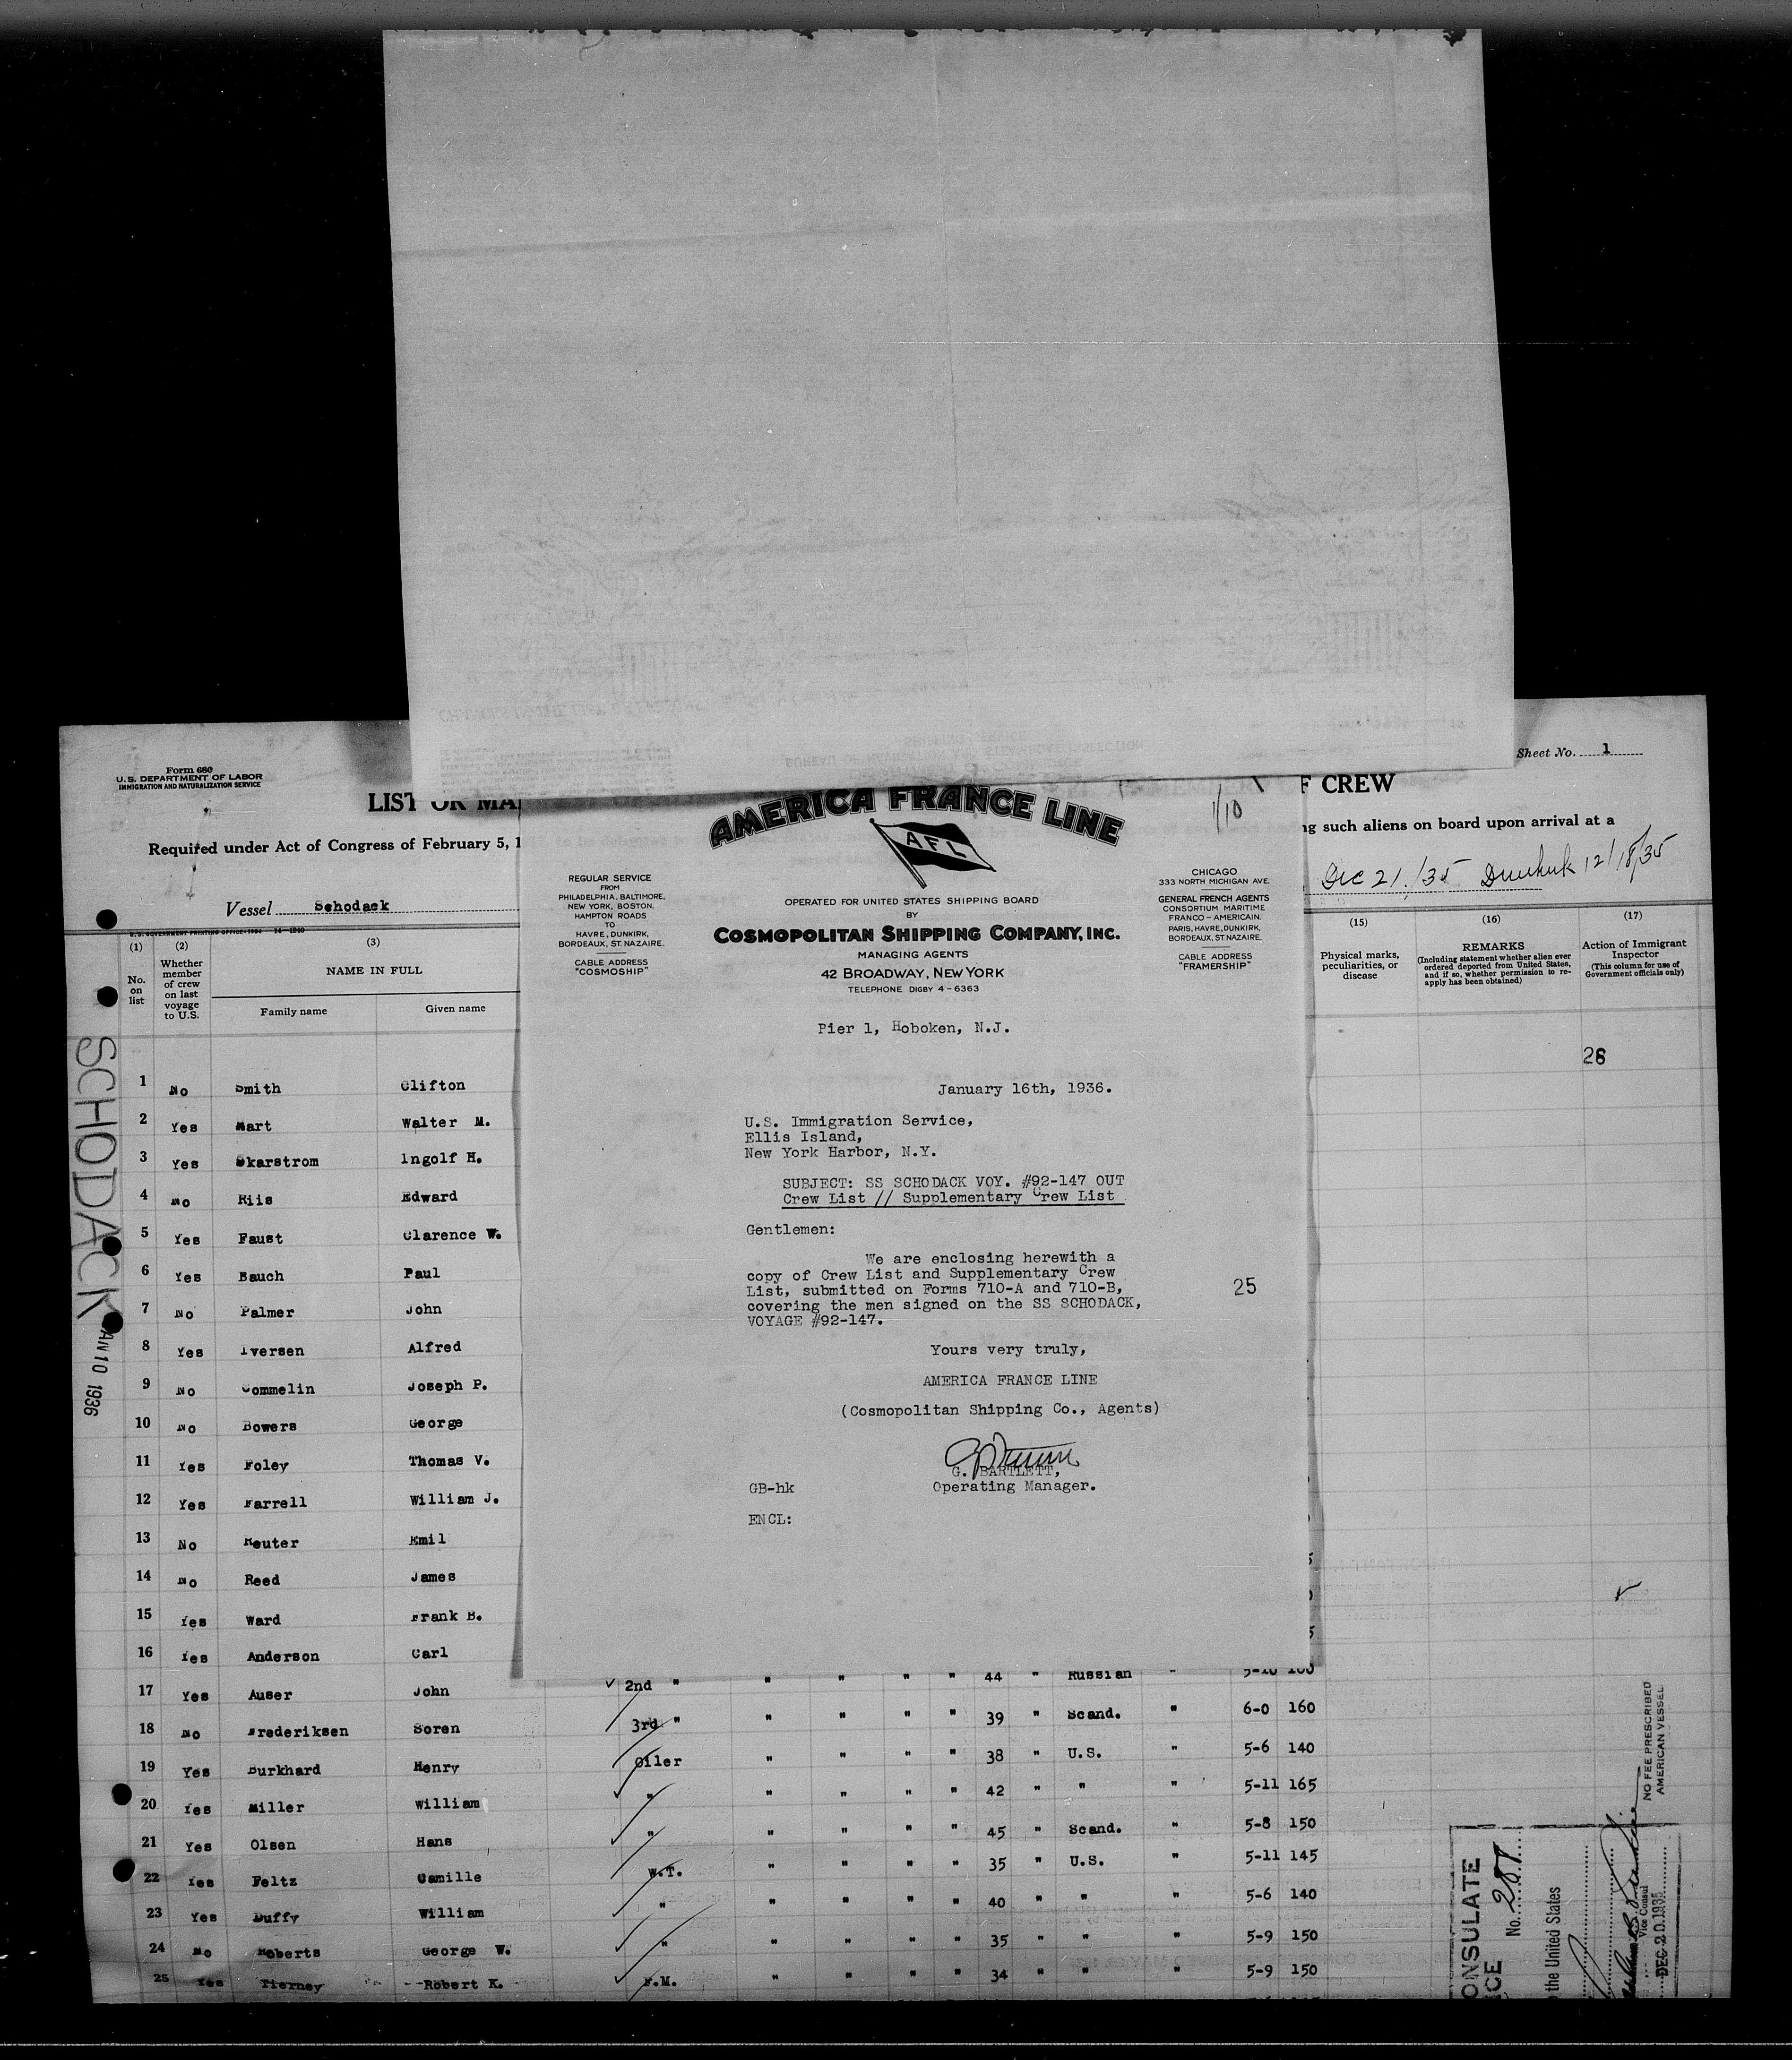 Form 680
U. S. DEPARTMENT OF LABOR
IMMIGRATION AND NATURALIZATION SERVICE
Sheet No. 1
LIST OR MA
F CREW
Required under Act of Congress of February 5, 1
ng such aliens on board upon arrival at a
Vessel Schodack
Dec 21./35 Dunkirk 12/18/35
U. S. GOVERNMENT PRINTING OFFICE
(1) (2) (3) (15) (16) (17)
No. on list
Whether member of crew on last voyage to U.S.
NAME IN FULL
Family name Given name
Physical marks, peculiarities, or disease
REMARKS
(Including statement whether alien ever ordered deported from United States, and if so, whether permission to re-apply has been obtained)
Action of Immigrant Inspector
(This column for use of Government officials only)
26
SCHODACK
AN 10 1936
1 No Smith Clifton
2 Yes Mart Walter M.
3 Yes Skarstrom Ingolf H.
4 No Riis Edward
5 Yes Faust Clarence W.
6 Yes Bauch Paul
7 No Palmer John
8 Yes Iversen Alfred
9 No Commelin Joseph P.
10 No Bowers George
11 Yes Foley Thomas V.
12 Yes Farrell William J.
13 No Reuter Emil
14 No Reed James
15 Yes Ward Frank B.
16 Yes Anderson Carl
17 Yes Auser John 2nd " " " " " 44 " Russian " 5-10 160
18 No Frederiksen Soren 3rd " " " " " 39 " Scand. " 6-0 160
19 Yes Burkhard Henry Oiler " " " " 38 " U.S. " 5-6 140
20 Yes Miller William " " " " " 42 " " " 5-11 165
21 Yes Olsen Hans " " " " " 45 " Scand. " 5-8 150
22 Yes Feltz Camille W.T. " " " " 35 " U.S. " 5-11 145
23 Yes Duffy William " " " " " 40 " " " 5-6 140
24 No Roberts George W. " " " " " 35 " " " 5-9 150
25 Yes Tierney Robert K. F.M. " " " " 34 " " " 5-9 150
AMERICA FRANCE LINE
AFL
1/10
REGULAR SERVICE
FROM
PHILADELPHIA, BALTIMORE,
NEW YORK, BOSTON,
HAMPTON ROADS
TO
HAVRE, DUNKIRK,
BORDEAUX, ST. NAZAIRE.
CABLE ADDRESS
"COSMOSHIP"
OPERATED FOR UNITED STATES SHIPPING BOARD
BY
COSMOPOLITAN SHIPPING COMPANY, INC.
MANAGING AGENTS
42 BROADWAY, NEW YORK
TELEPHONE DIGBY 4-6363
CHICAGO
333 NORTH MICHIGAN AVE.
GENERAL FRENCH AGENTS
CONSORTIUM MARITIME
FRANCO-AMERICAIN.
PARIS, HAVRE, DUNKIRK,
BORDEAUX, ST NAZAIRE.
CABLE ADDRESS
"FRAMERSHIP"
Pier 1, Hoboken, N.J.
January 16th, 1936.
U.S. Immigration Service,
Ellis Island,
New York Harbor, N.Y.
SUBJECT: SS SCHODACK VOY. #92-147 OUT
Crew List // Supplementary Crew List
Gentlemen:
We are enclosing herewith a
copy of Crew List and Supplementary Crew
List, submitted on Forms 710-A and 710-B,
covering the men signed on the SS SCHODACK,
VOYAGE #92-147.
25
Yours very truly,
AMERICA FRANCE LINE
(Cosmopolitan Shipping Co., Agents)
G. BARTLETT,
GB-hk Operating Manager.
ENCL:
NO FEE PRESCRIBED
AMERICAN VESSEL
ONSULATE
ICE No. 288
the United States
Vice Consul
DEC 20 1935